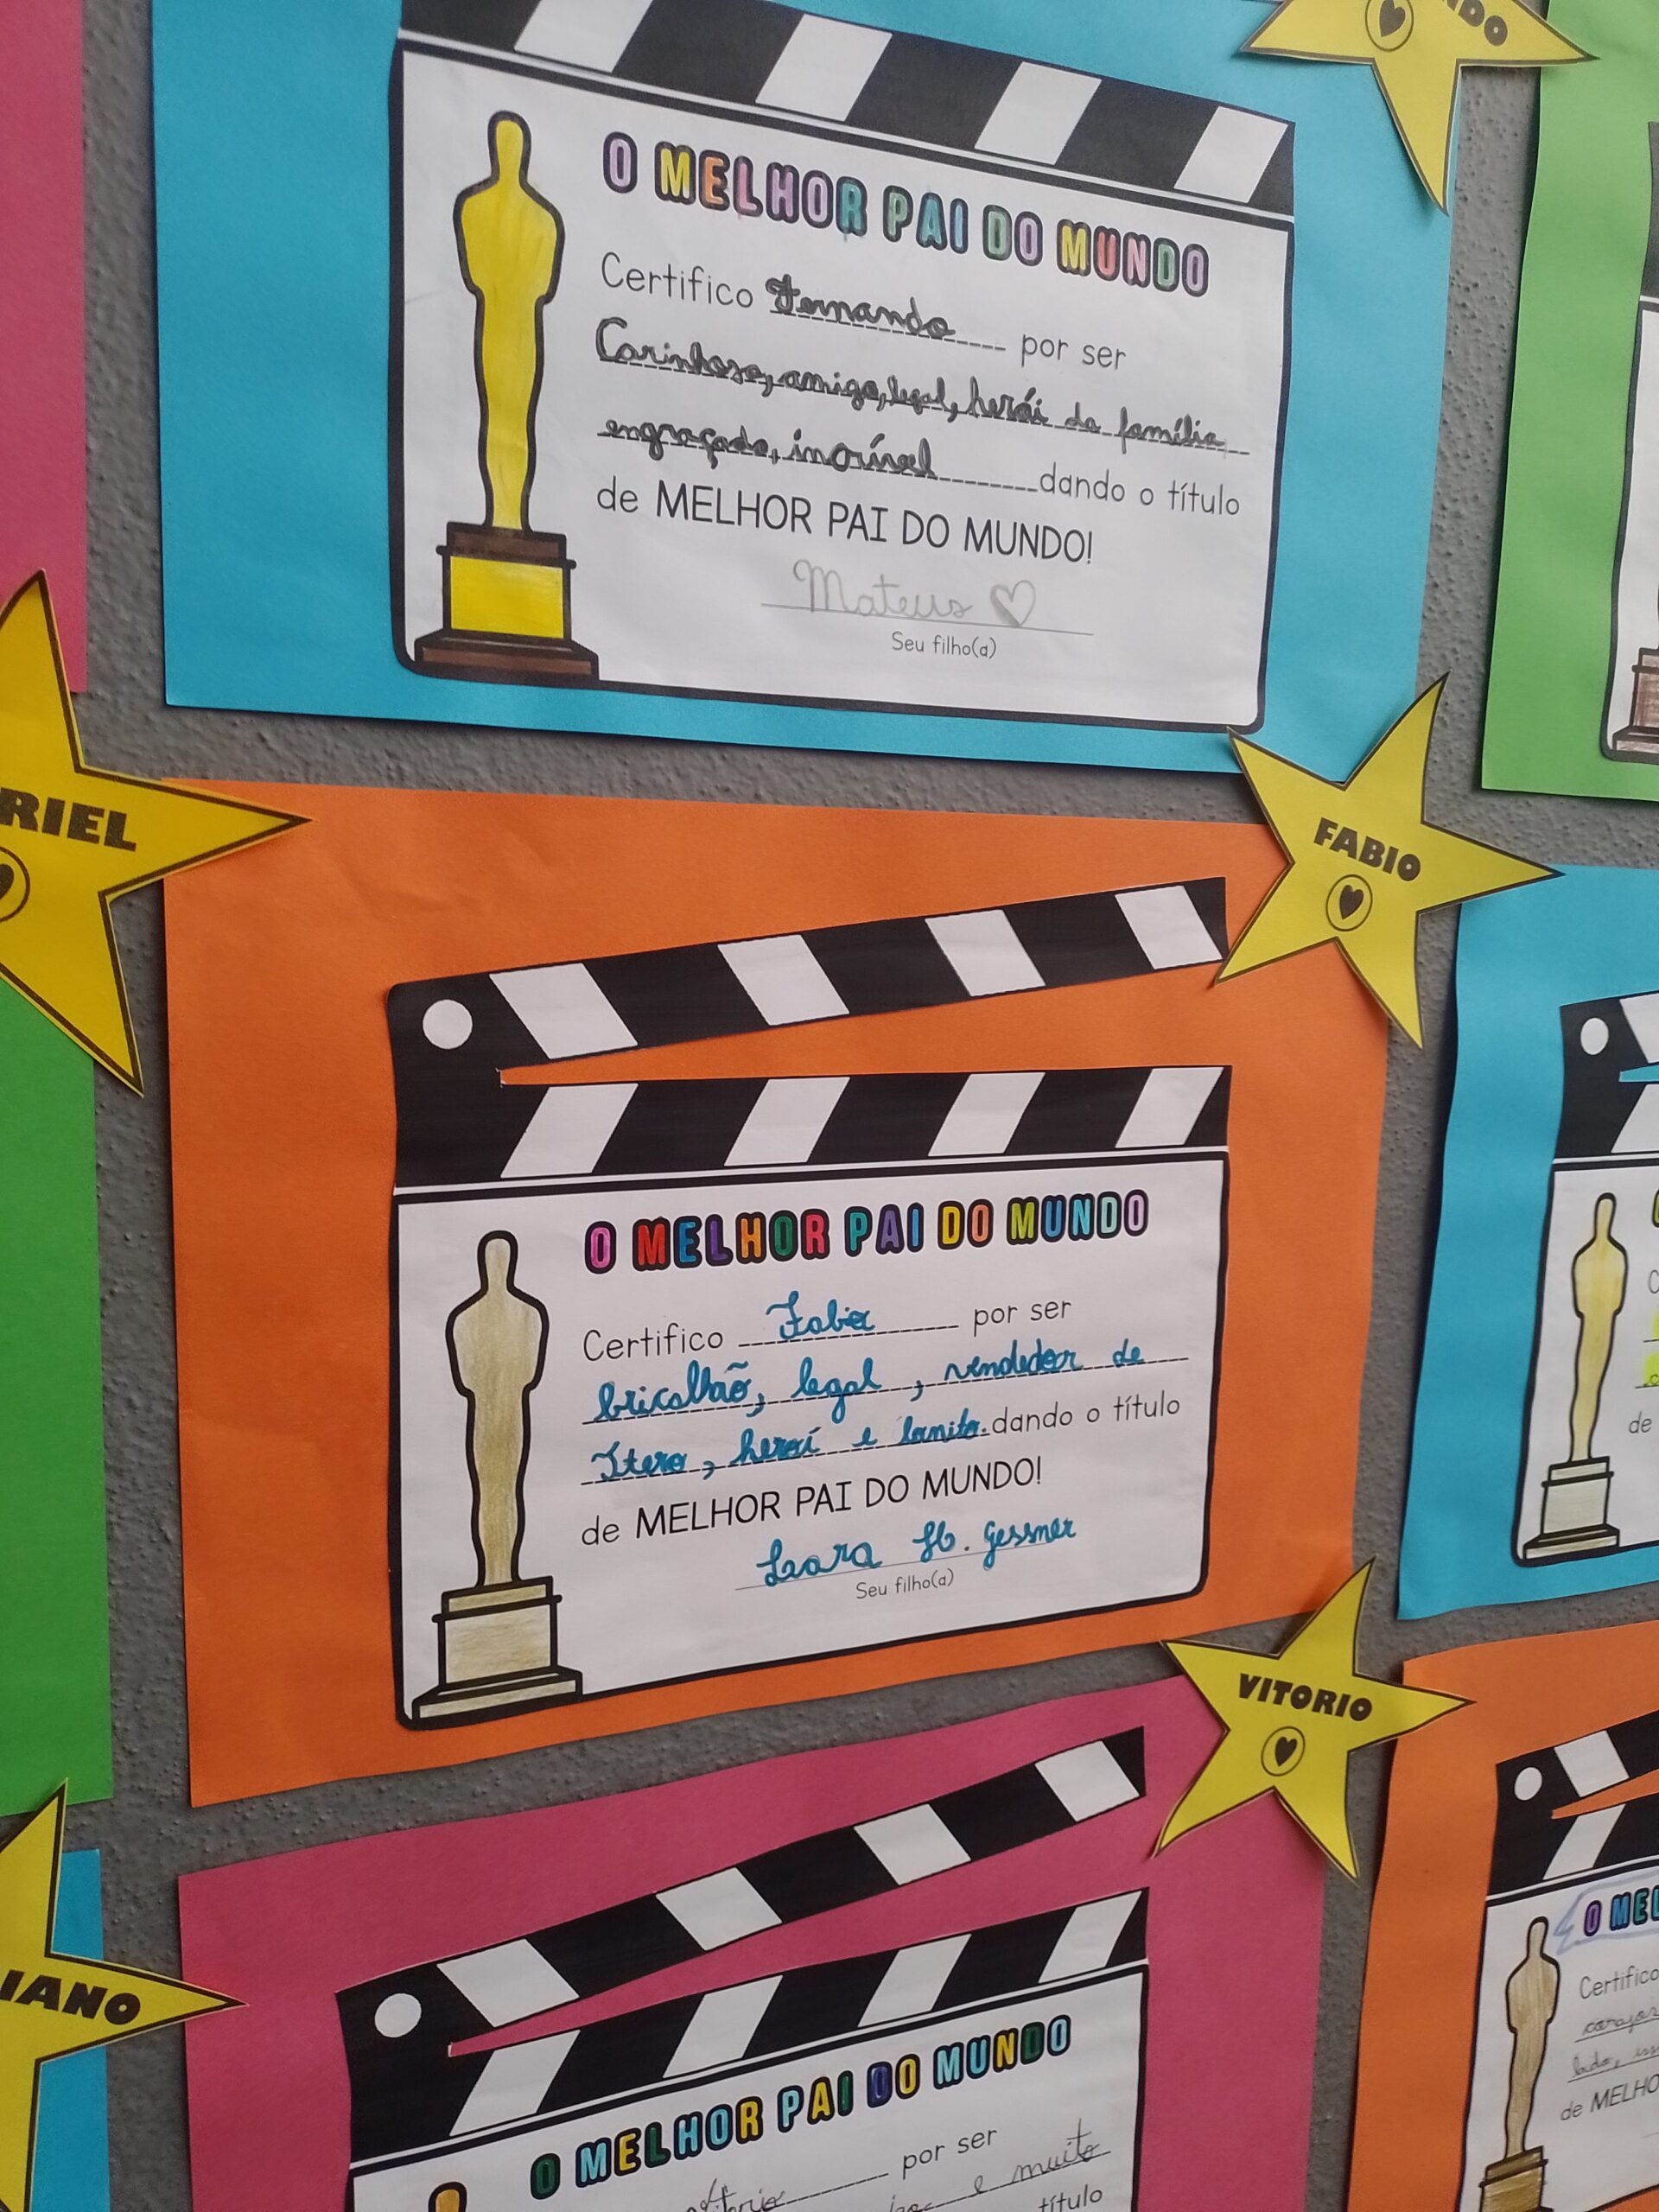 DO
O MELHOR PAI DO MUNDO
Certifico Fernando por ser
Carinhoso, amigo, legal, herói da família
engraçado, incrível dando o título
de MELHOR PAI DO MUNDO!
Mateus
Seu filho(a)
RIEL
FABIO
O MELHOR PAI DO MUNDO
Certifico Fabio por ser
bricalhão, legal, vendedor de
heroí e bonito. dando o título
de MELHOR PAI DO MUNDO!
Gessner
Seu filho(a)
VITORIO
IANO
O MELHOR PAI DO MUNDO
por ser
e muito
título
O MEL
Certifico
de MELHO
de